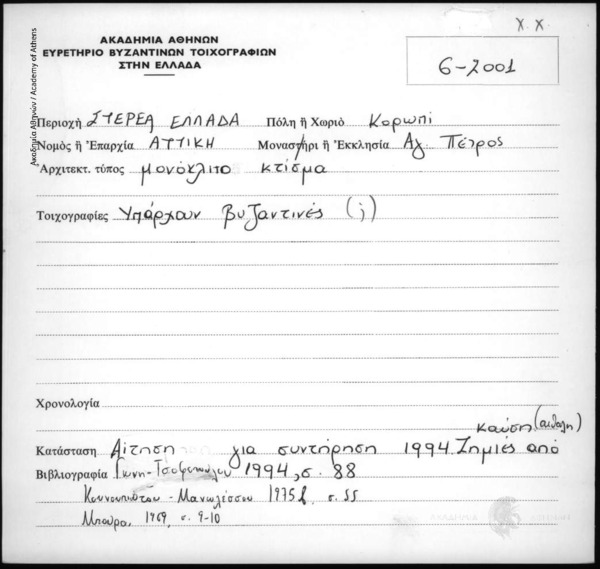 x x
ΑΚΑΔΗΜΙΑ ΑΘΗΝΩΝ
ΕΥΡΕΤΗΡΙΟ ΒΥΖΑΝΤΙΝΩΝ ΤΟΙΧΟΓΡΑΦΙΩΝ
ΣΤΗΝ ΕΛΛΑΔΑ
6-2001
Ακαδημία Αθηνών / Academy of Athens
Περιοχή ΣΤΕΡΕΑ ΕΛΛΑΔΑ Πόλη ἤ Χωριό Κορωπί
Νομὸς ἤ Ἐπαρχία ΑΤΤΙΚΗ Μοναστήρι ἤ Ἐκκλησία Αγ. Πέτρος
Ἀρχιτεκτ. τύπος μονόκλιτο κτίσμα
Τοιχογραφίες Υπάρχουν βυζαντινές (;)
Χρονολογία
καύση (αιθάλη)
Κατάσταση Αίτηση για συντήρηση 1994. Ζημιές από
Βιβλιογραφία Γκίνη-Τσοφοπούλου 1994, σ. 88
Κουνουπιώτου-Μανωλέσσου 1975 σ. 55
Μπούρα, 1969, σ. 9-10